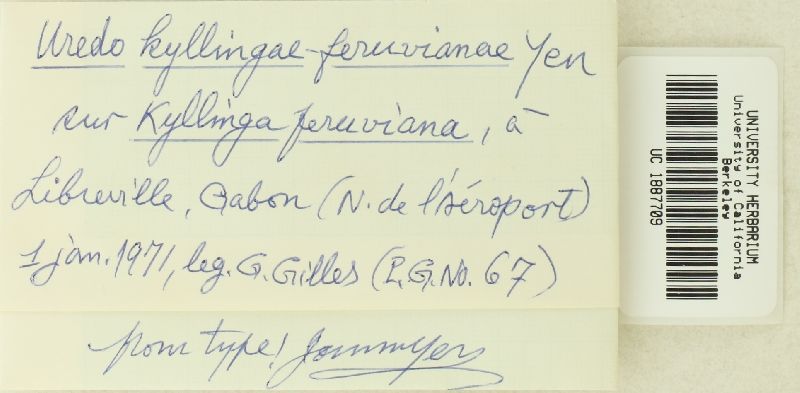 Uredo kyllingae-peruvianae Yen
sur Kyllinga peruviana, à
Libreville, Gabon (N. de l'aéroport)
1 jan. 1971, leg. G. Gilles (P.G. No. 67)
from type!
UNIVERSITY HERBARIUM
University of California
Berkeley
UC 1887709